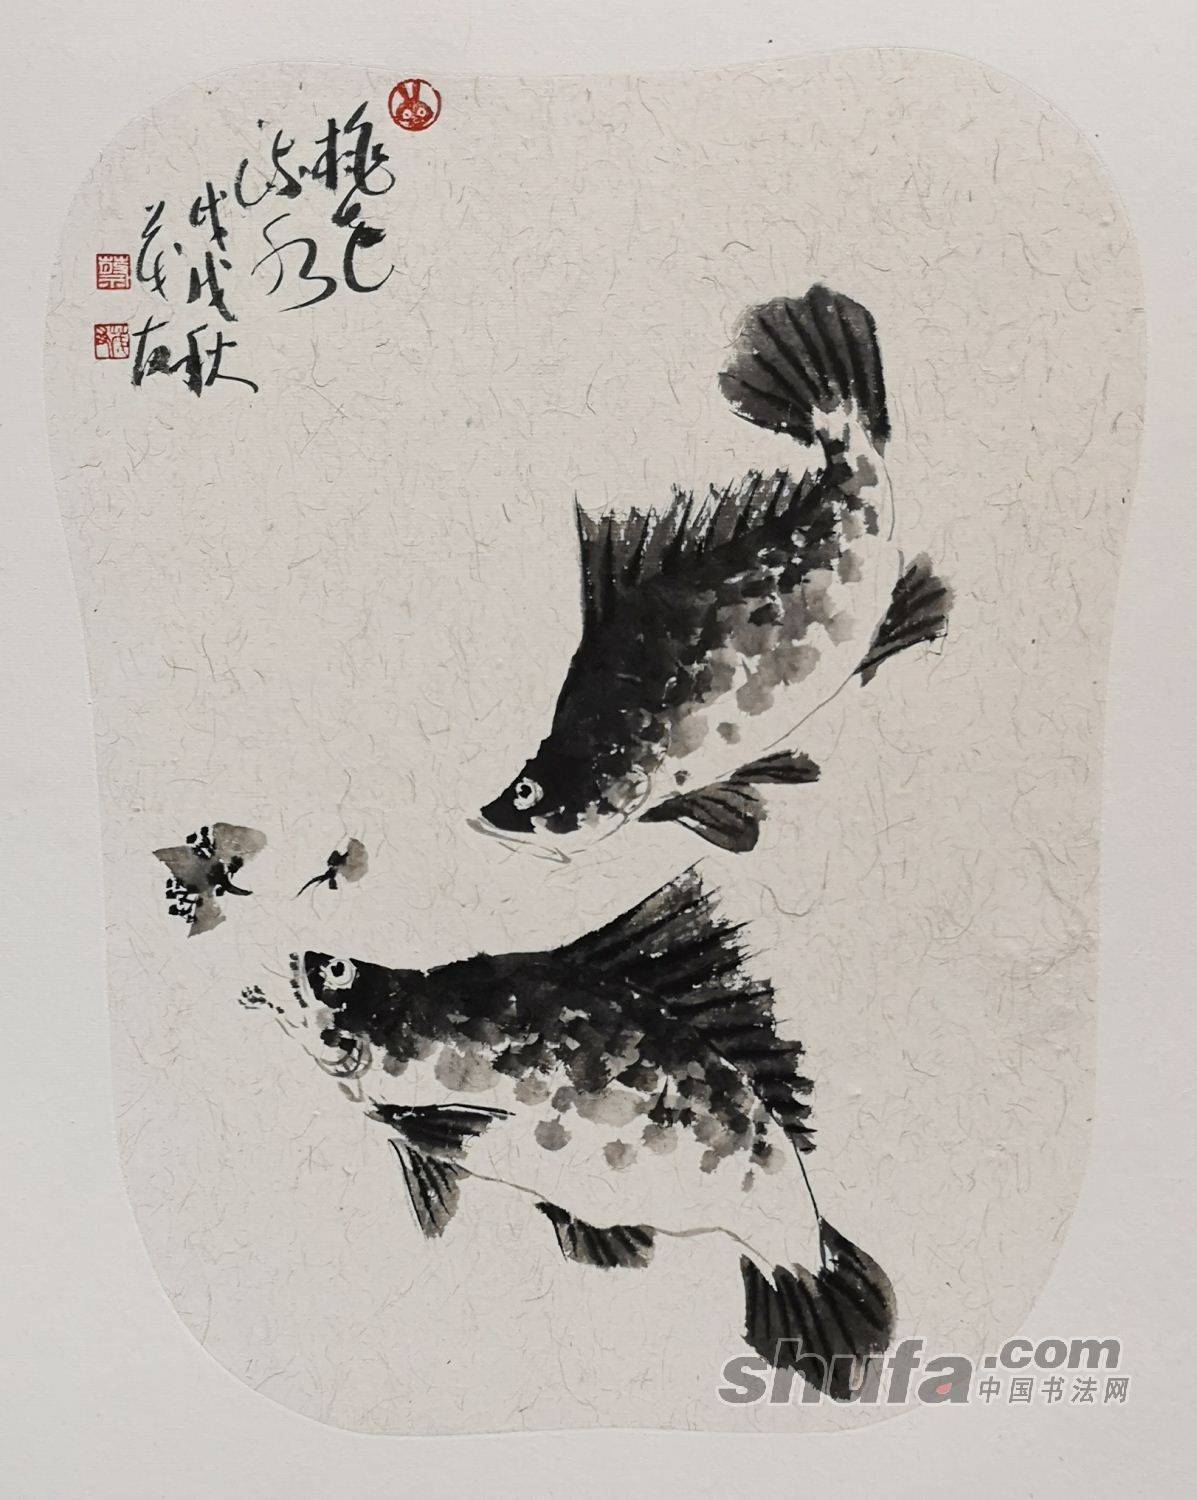 桃花
流水
戊戌秋
茂友
shufa.com
中国书法网